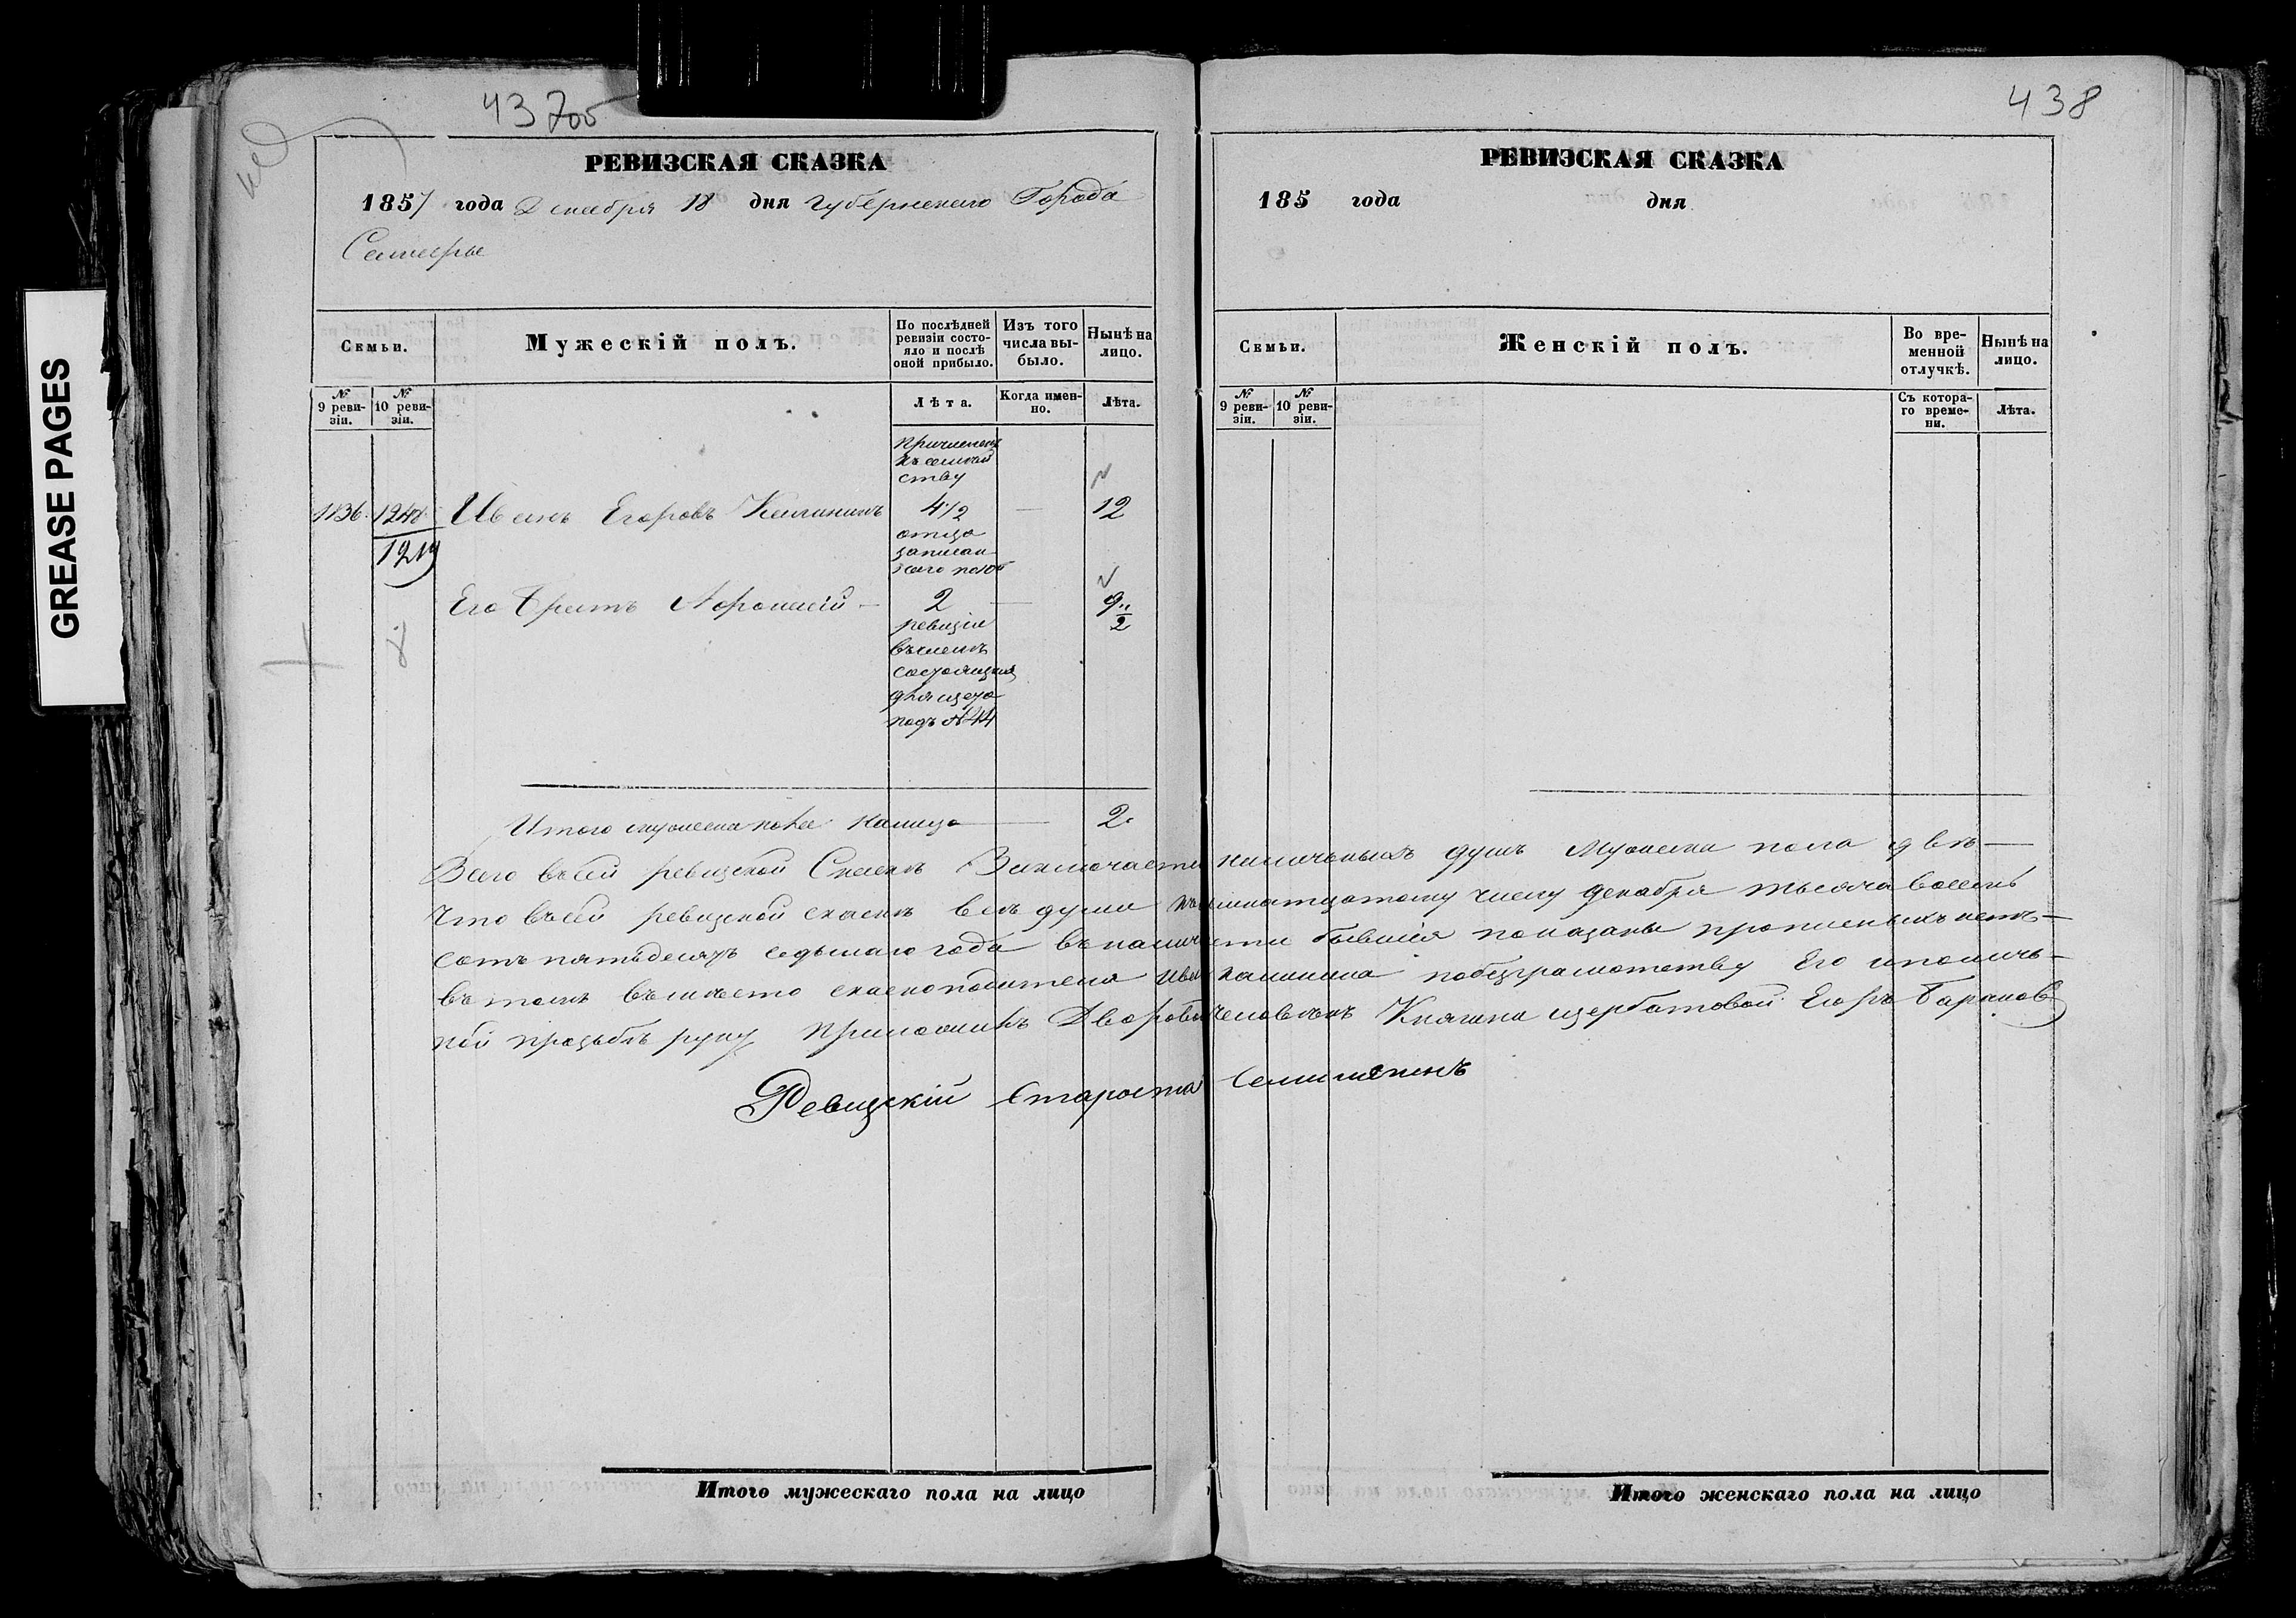 437об
438
GREASE PAGES
РЕВИЗСКАЯ СКАЗКА
1857 года Декабря 18 дня Губернскаго Города
Самары
Семьи.
Мужескій полъ.
По послѣдней ревизіи состояло и послѣ оной прибыло.
Изъ того числа выбыло.
Нынѣ на лицо.
№ 9 ревизіи.
№ 10 ревизіи.
Лѣта.
Когда именно.
Лѣта.
причислены
къ семей
ству
1136 1248 Иванъ Егоровъ Калининъ 4½ — 12
1219
отца
записан
наго по 10й
Его братъ Афонасій — 2 — 9½
ревизіи
въ
состоящия
подъ № 44
Итого мужеска пола налицо — 2.
Всего въ сей ревизской Сказкѣ Заключается наличныхъ душъ Мужеска пола двѣ —
Что въ сей ревизской сказкѣ всѣ души числу декабря тысяча восемь
сотъ пятьдесятъ седьмаго года въ наличности бывшія показаны прописныхъ нетъ —
въ томъ вместо сказкоподателя Ивана Калинина побезграмотству Его и по лич-
ной прозьбѣ руку приложилъ Дворовый человѣкъ Княгини Щербатовой Егоръ Баранов
Ревизскій Староста
Итого мужескаго пола на лицо
РЕВИЗСКАЯ СКАЗКА
185 года дня
Семьи.
Женскій полъ.
Во временной отлучкѣ.
Нынѣ на лицо.
№ 9 ревизіи.
№ 10 ревизіи.
Съ котораго времени.
Лѣта.
Итого женскаго пола на лицо